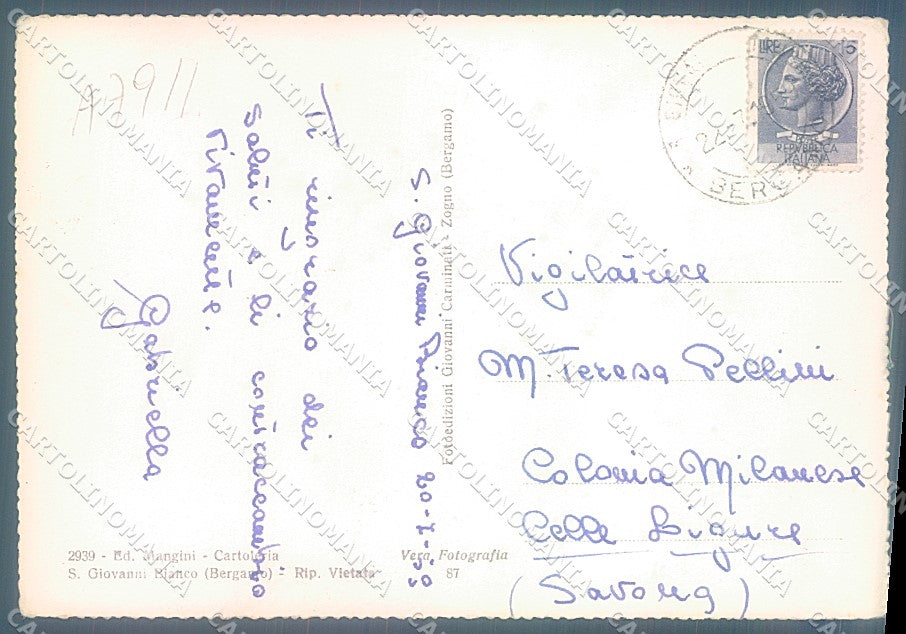 A7911
S. Giovanni Bianco 20-7-59
Ti ringrazio dei
saluti e li contraccambio
vivamente.
Gabriella
Fotoedizioni Giovanni Carminati - Zogno (Bergamo)
LIRE 15
REPVBBLICA
ITALIANA
BERGA
Vigilatrice
M. Teresa Pellini
Colonia Milanese
Celle Ligure
(Savona)
2939 - Ed. Mangini - Cartoleria
S. Giovanni Bianco (Bergamo) - Rip. Vietata
Vera Fotografia
87
CARTOLINOMANIA